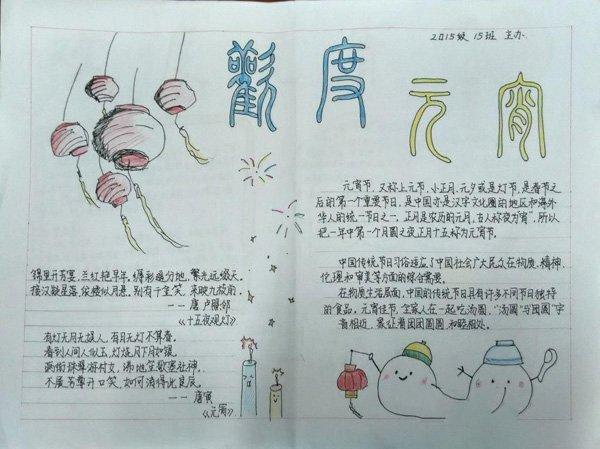 2015级 15班 主办.
觀度元宵
元宵节，又称上元节、小正月、元夕或是灯节，是春节之
后的第一个重要节日，是中国亦是汉字文化圈的地区和海外
华人的统一节日之一。正月是农历的元月，古人称夜为"宵"，所以
把一年中第一个月圆之夜正月十五称为元宵节。
中国传统节日习俗适应了中国社会广大民众在物质、精神、
伦理和审美等方面的综合需要。
在物质生活层面，中国的传统节日具有许多不同节日独特
的食品。元宵佳节，全家人在一起吃汤圆，"汤圆"与"团圆"字
音相近，象征着团团圆圆，和睦相处。
锦里开芳宴，兰红艳早年。缛彩遥分地，繁光远缀天。
接汉疑星落，依楼似月悬。别有千金笑，来映九枝前。
——唐 卢照邻
《十五夜观灯》
有灯无月无娱人，有月无灯不算春。
春到人间人似玉，灯烧月下月如银。
满街珠翠游村女，沸地笙歌赛社神。
不展芳尊开口笑，如何消得此良辰。
——唐寅
《元宵》